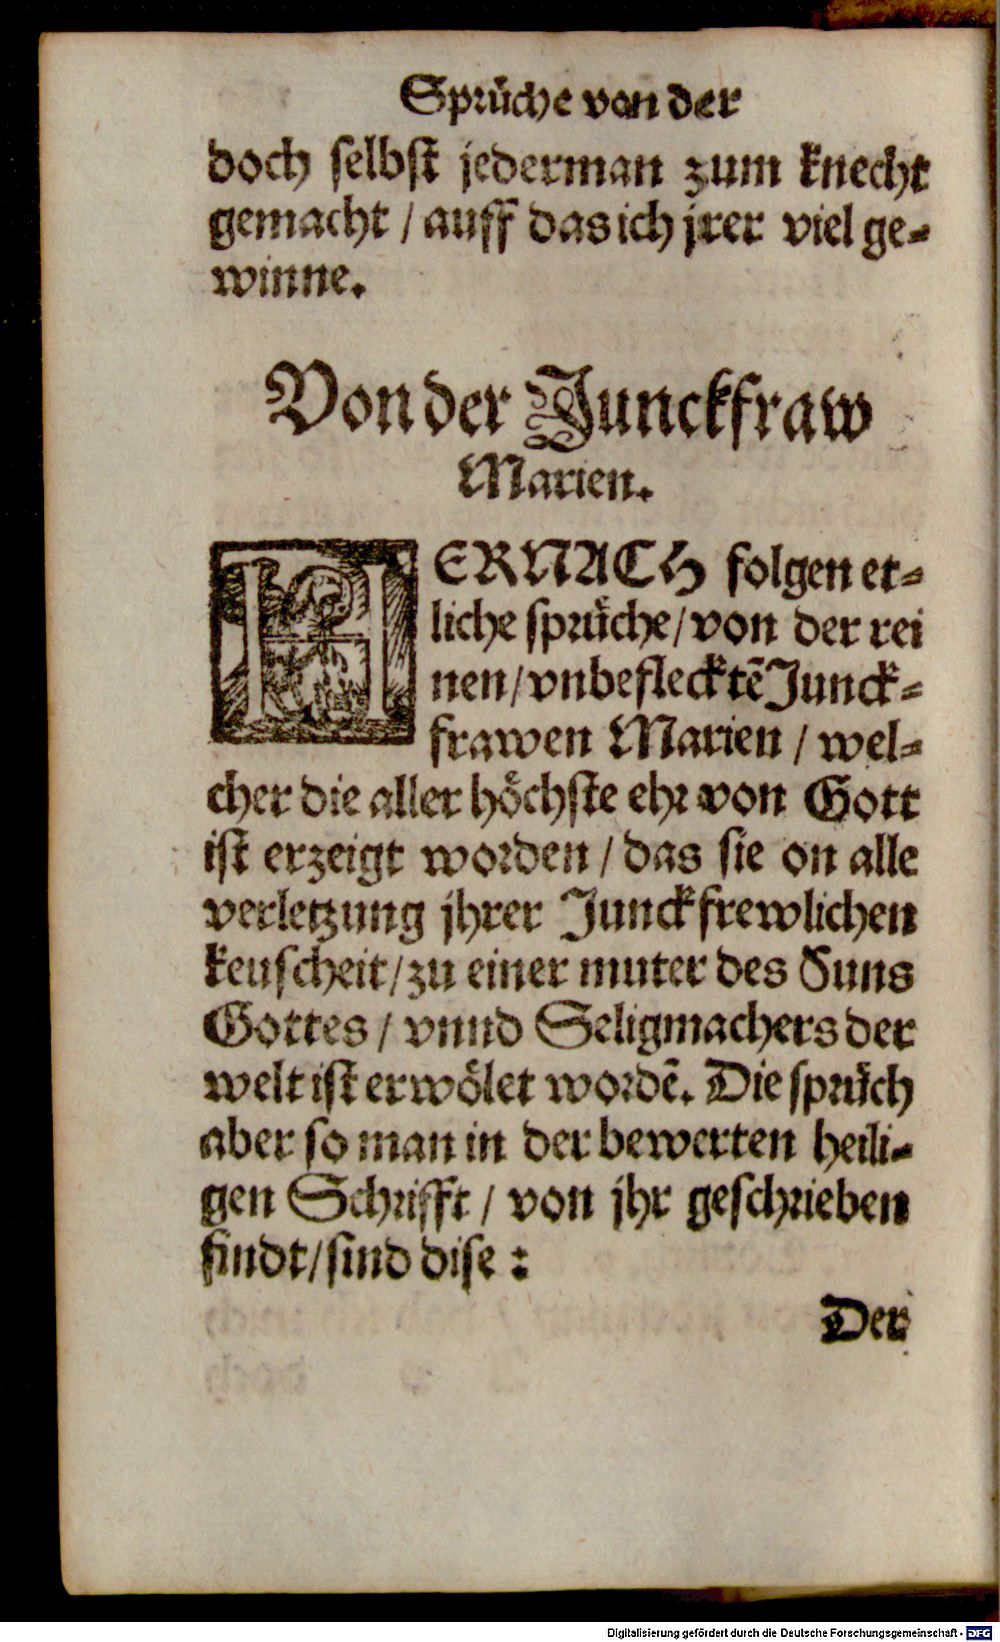 Sprüche von der
doch selbst jederman zum knecht
gemacht / auff das ich jrer viel ge-
winne.
Von der Junckfraw
Marien.
HERNACH folgen et-
liche sprüche / von der rei
nen / vnbeflecktē Junck-
frawen Marien / wel-
cher die aller höchste ehr von Gott
ist erzeigt worden / das sie on alle
verletzung jhrer Junckfrewlichen
keuscheit / zu einer muter des Suns
Gottes / vnnd Seligmachers der
welt ist erwölet wordē. Die sprüch
aber so man in der bewerten heili-
gen Schrifft / von jhr geschrieben
findt / sind dise :
Der
Digitalisierung gefördert durch die Deutsche Forschungsgemeinschaft - DFG